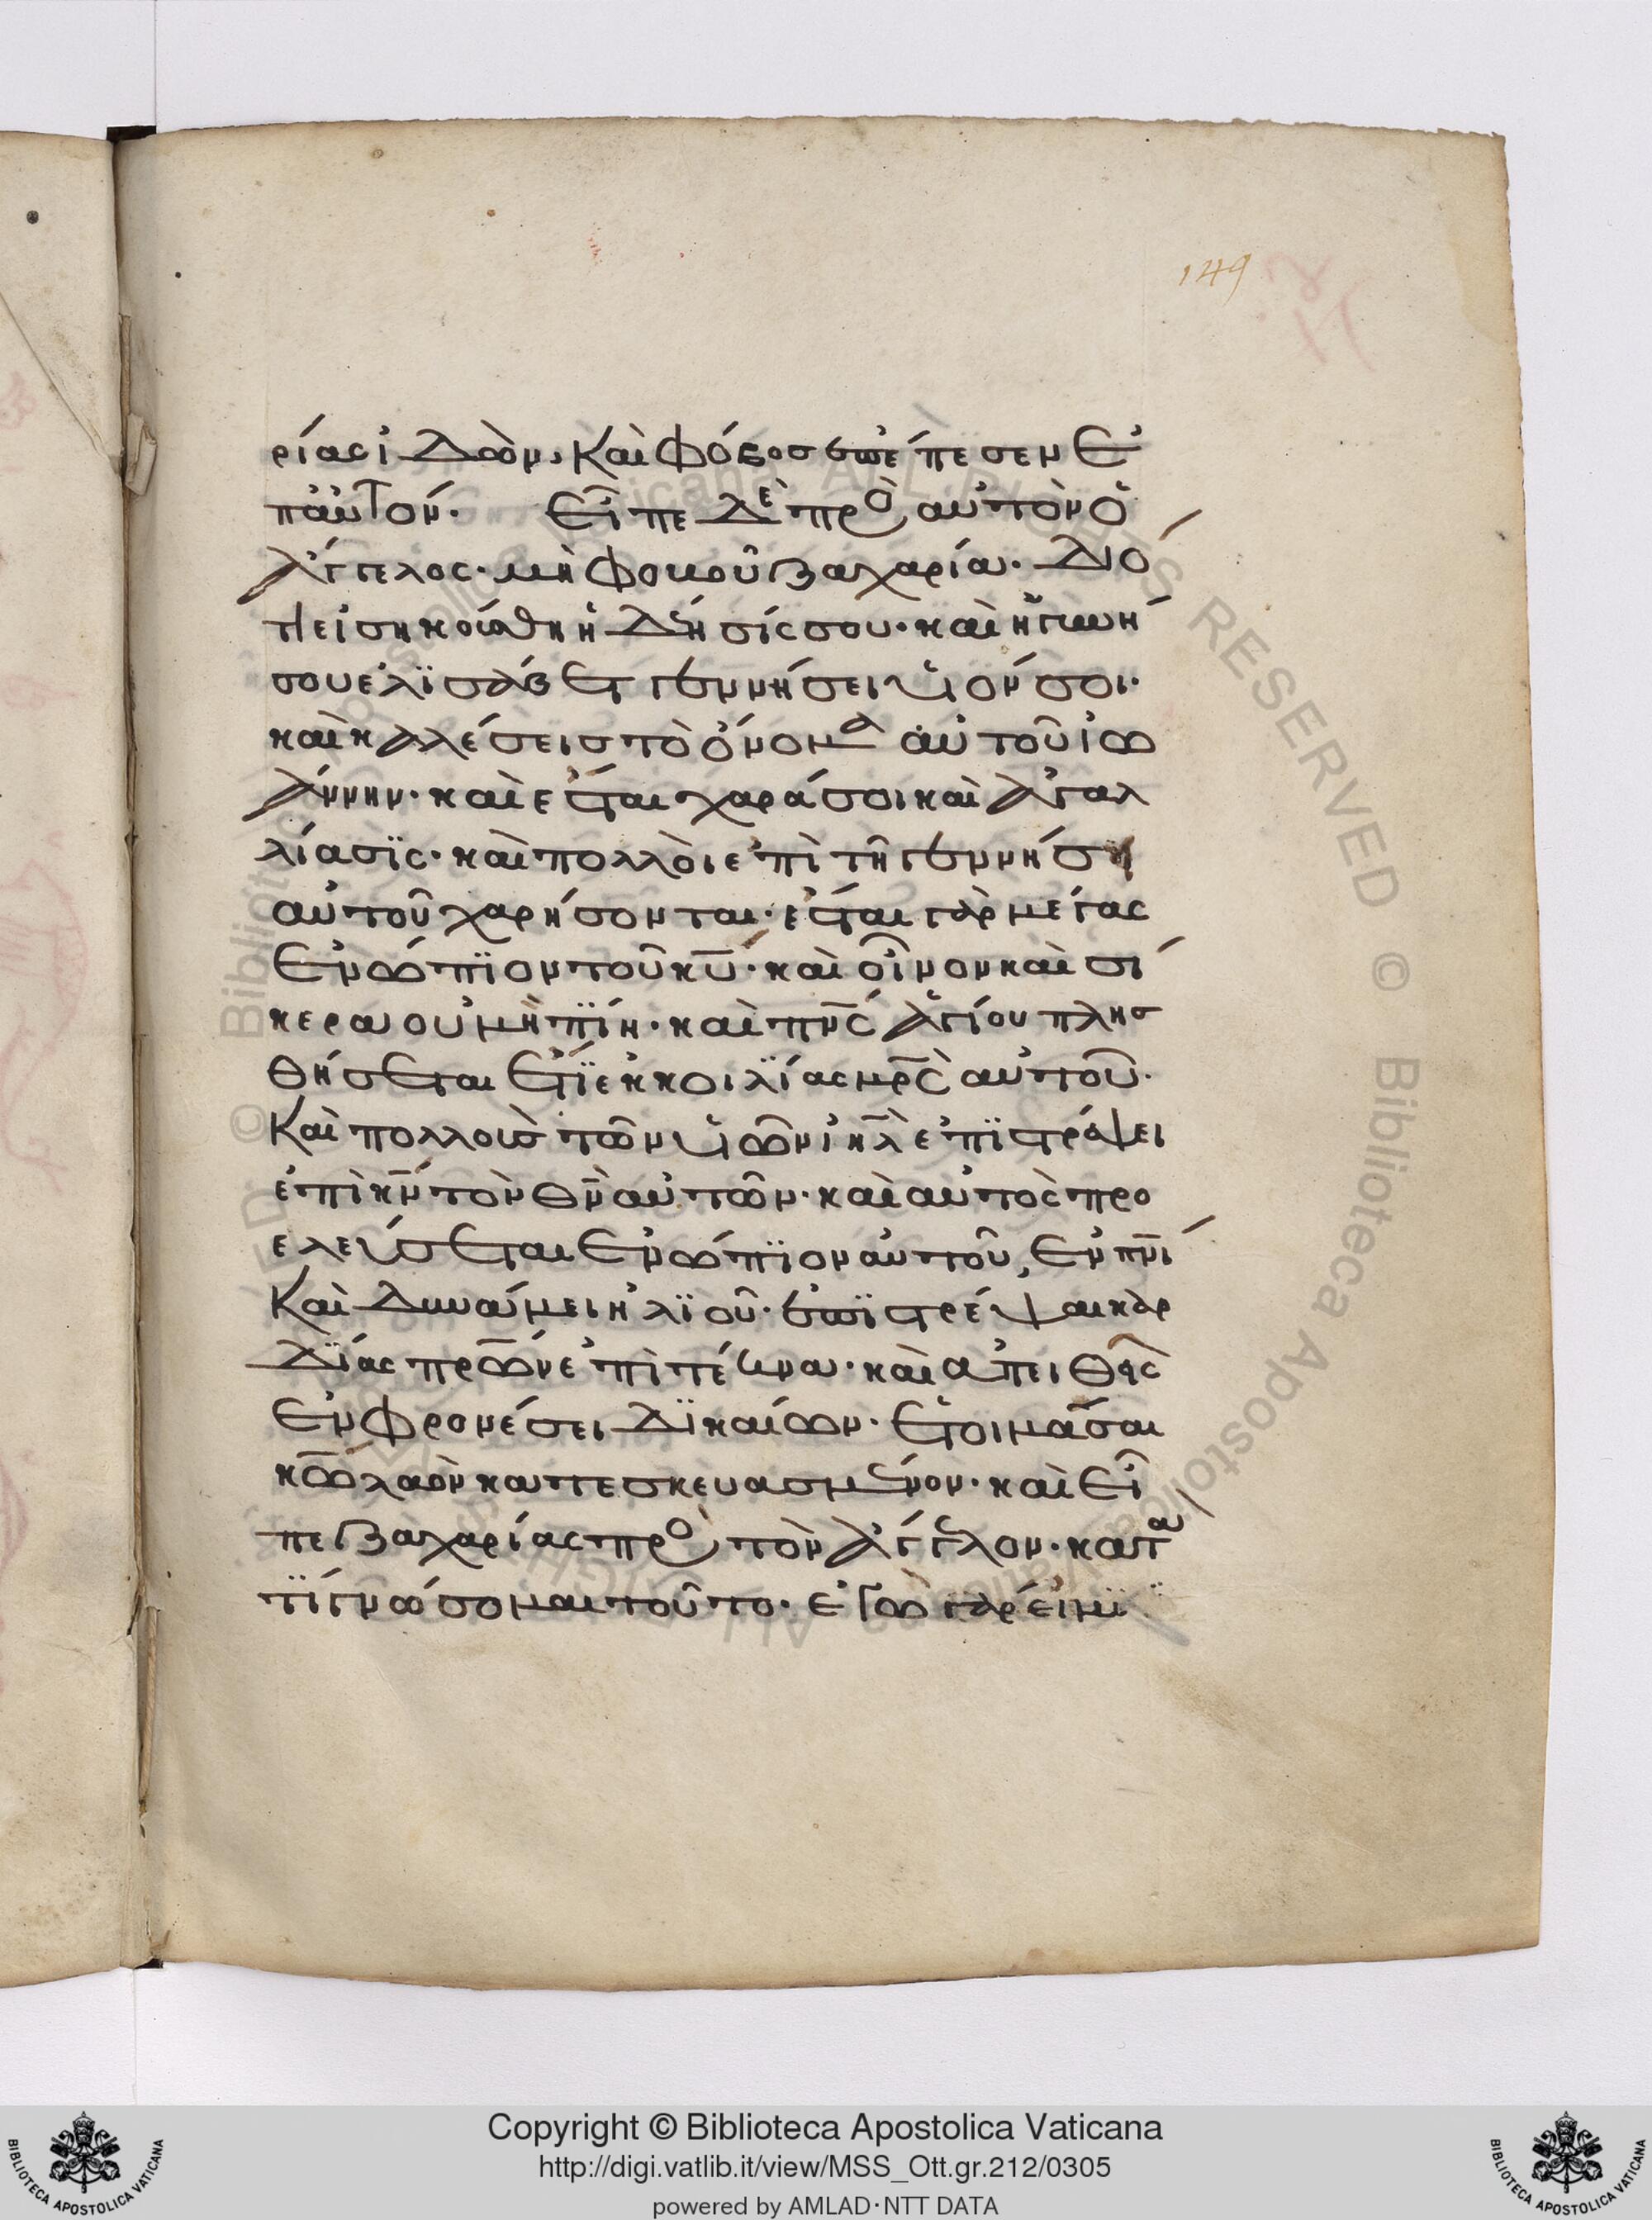 149
ρίας ἰδὼν, καὶ φόβος ἐπέπεσεν ἐ
π᾿ αὐτόν. εἶπε δὲ πρὸς αὐτὸν ὁ
ἄγγελος· μὴ φοβοῦ ζαχαρία. διό
τι εἰσηκούσθη ἡ δέησίς σου· καὶ ἡ γυνή
σου ἐλϊσάβετ γεννήσει υἱόν σοι·
καὶ καλέσεις τὸ ὄνομα αὐτοῦ ἰω
άννην· καὶ ἔσται χαρά σοι καὶ ἀγαλ
λίασϊς· καὶ πολλοὶ ἐπὶ τῆ γεννήση
αὐτοῦ χαρήσονται· ἔσται γὰρ μέγας
ἐνώπϊον τοῦ κυ̅· καὶ οἶνον καὶ σί
κερα οὐ μὴ πΐη· καὶ πν̅ς ἁγίου πλησ
θήσεται ἔτϊ ἐκ κοιλΐας μρ̅ς αὐτοῦ·
Καὶ πολλοὺς τῶν υἱῶν ἰηλ̅ ἐπϊστρέψει
ἐπὶ κν̅ τὸν θν̅ αὐτῶν· καὶ αὐτὸς προ
ελεύσεται ἐνώπϊον αὐτοῦ, ἐν πνι̅
Καὶ δυνάμει ἠλϊοῦ· ἐπϊστρέψαι καρ
δΐας πρω̅ν ἐπὶ τέκνα· καὶ ἀπειθεῖς
ἐν φρονέσει δϊκαίων· ἑτοιμᾶσαι
κω̅ λαὸν κατεσκευασμένον· καὶ εἶ
πε ζαχαρίας πρὸς τὸν ἄγγελον· κατὰ
τΐ γνώσομαι τοῦτο· ἐγὼ γάρ εἰμϊ
Copyright © Biblioteca Apostolica Vaticana
http://digi.vatlib.it/view/MSS_Ott.gr.212/0305
powered by AMLAD·NTT DATA
BIBLIOTECA APOSTOLICA VATICANA
BIBLIOTECA APOSTOLICA VATICANA